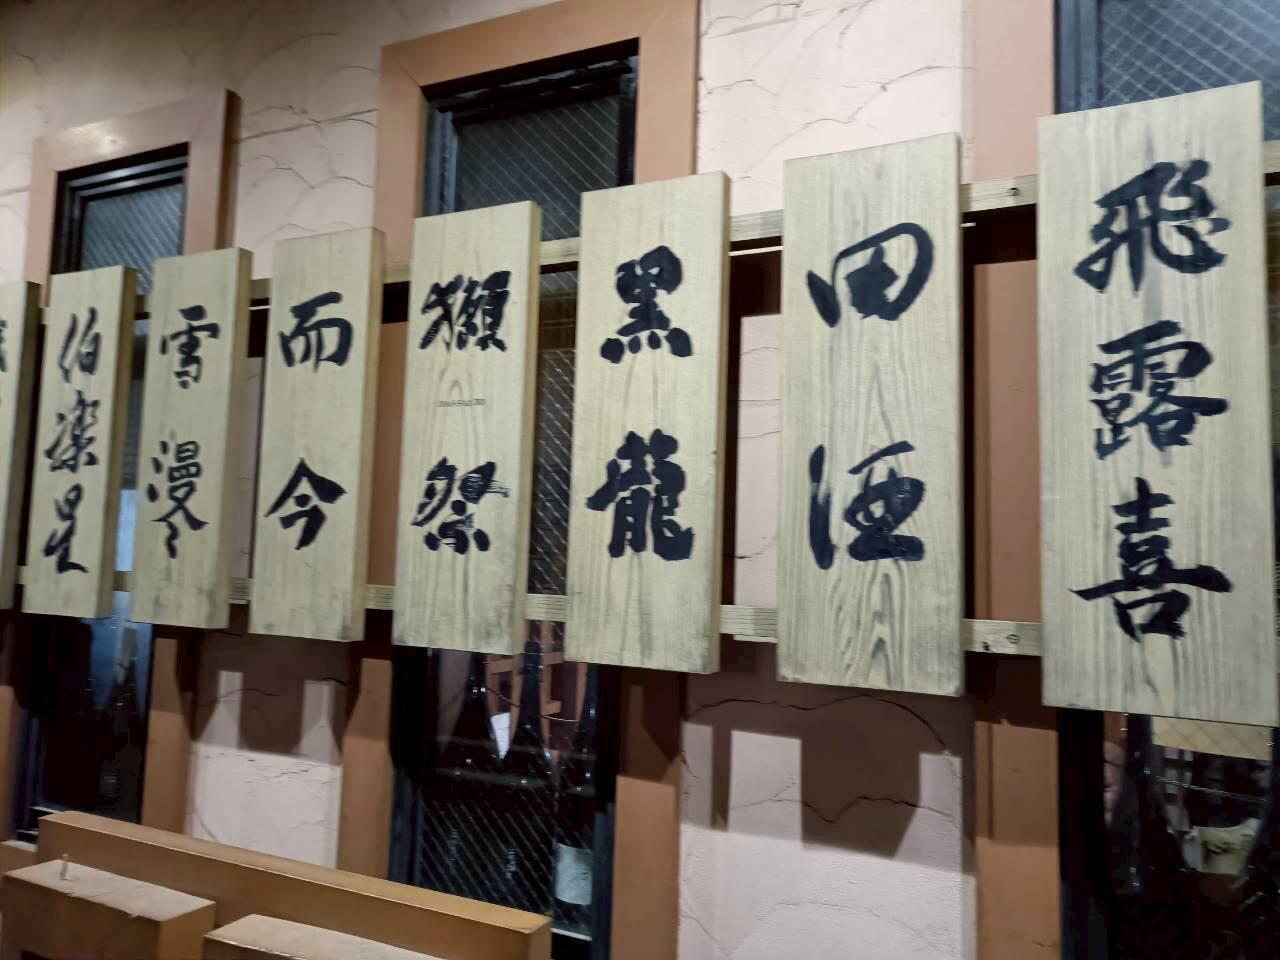 飛露喜
田酒
黑龍
獺祭
DASSAI 23
而今
雪漫々
伯楽星